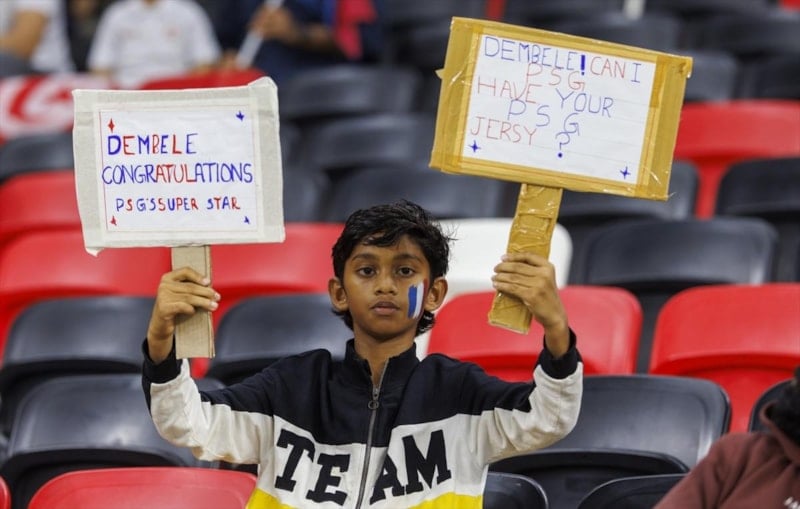 DEMBELE
CONGRATULATIONS
PSG'S SUPER STAR
DEMBELE! CAN I
PSG
HAVE YOUR
PSG
JERSY
?
TEAM